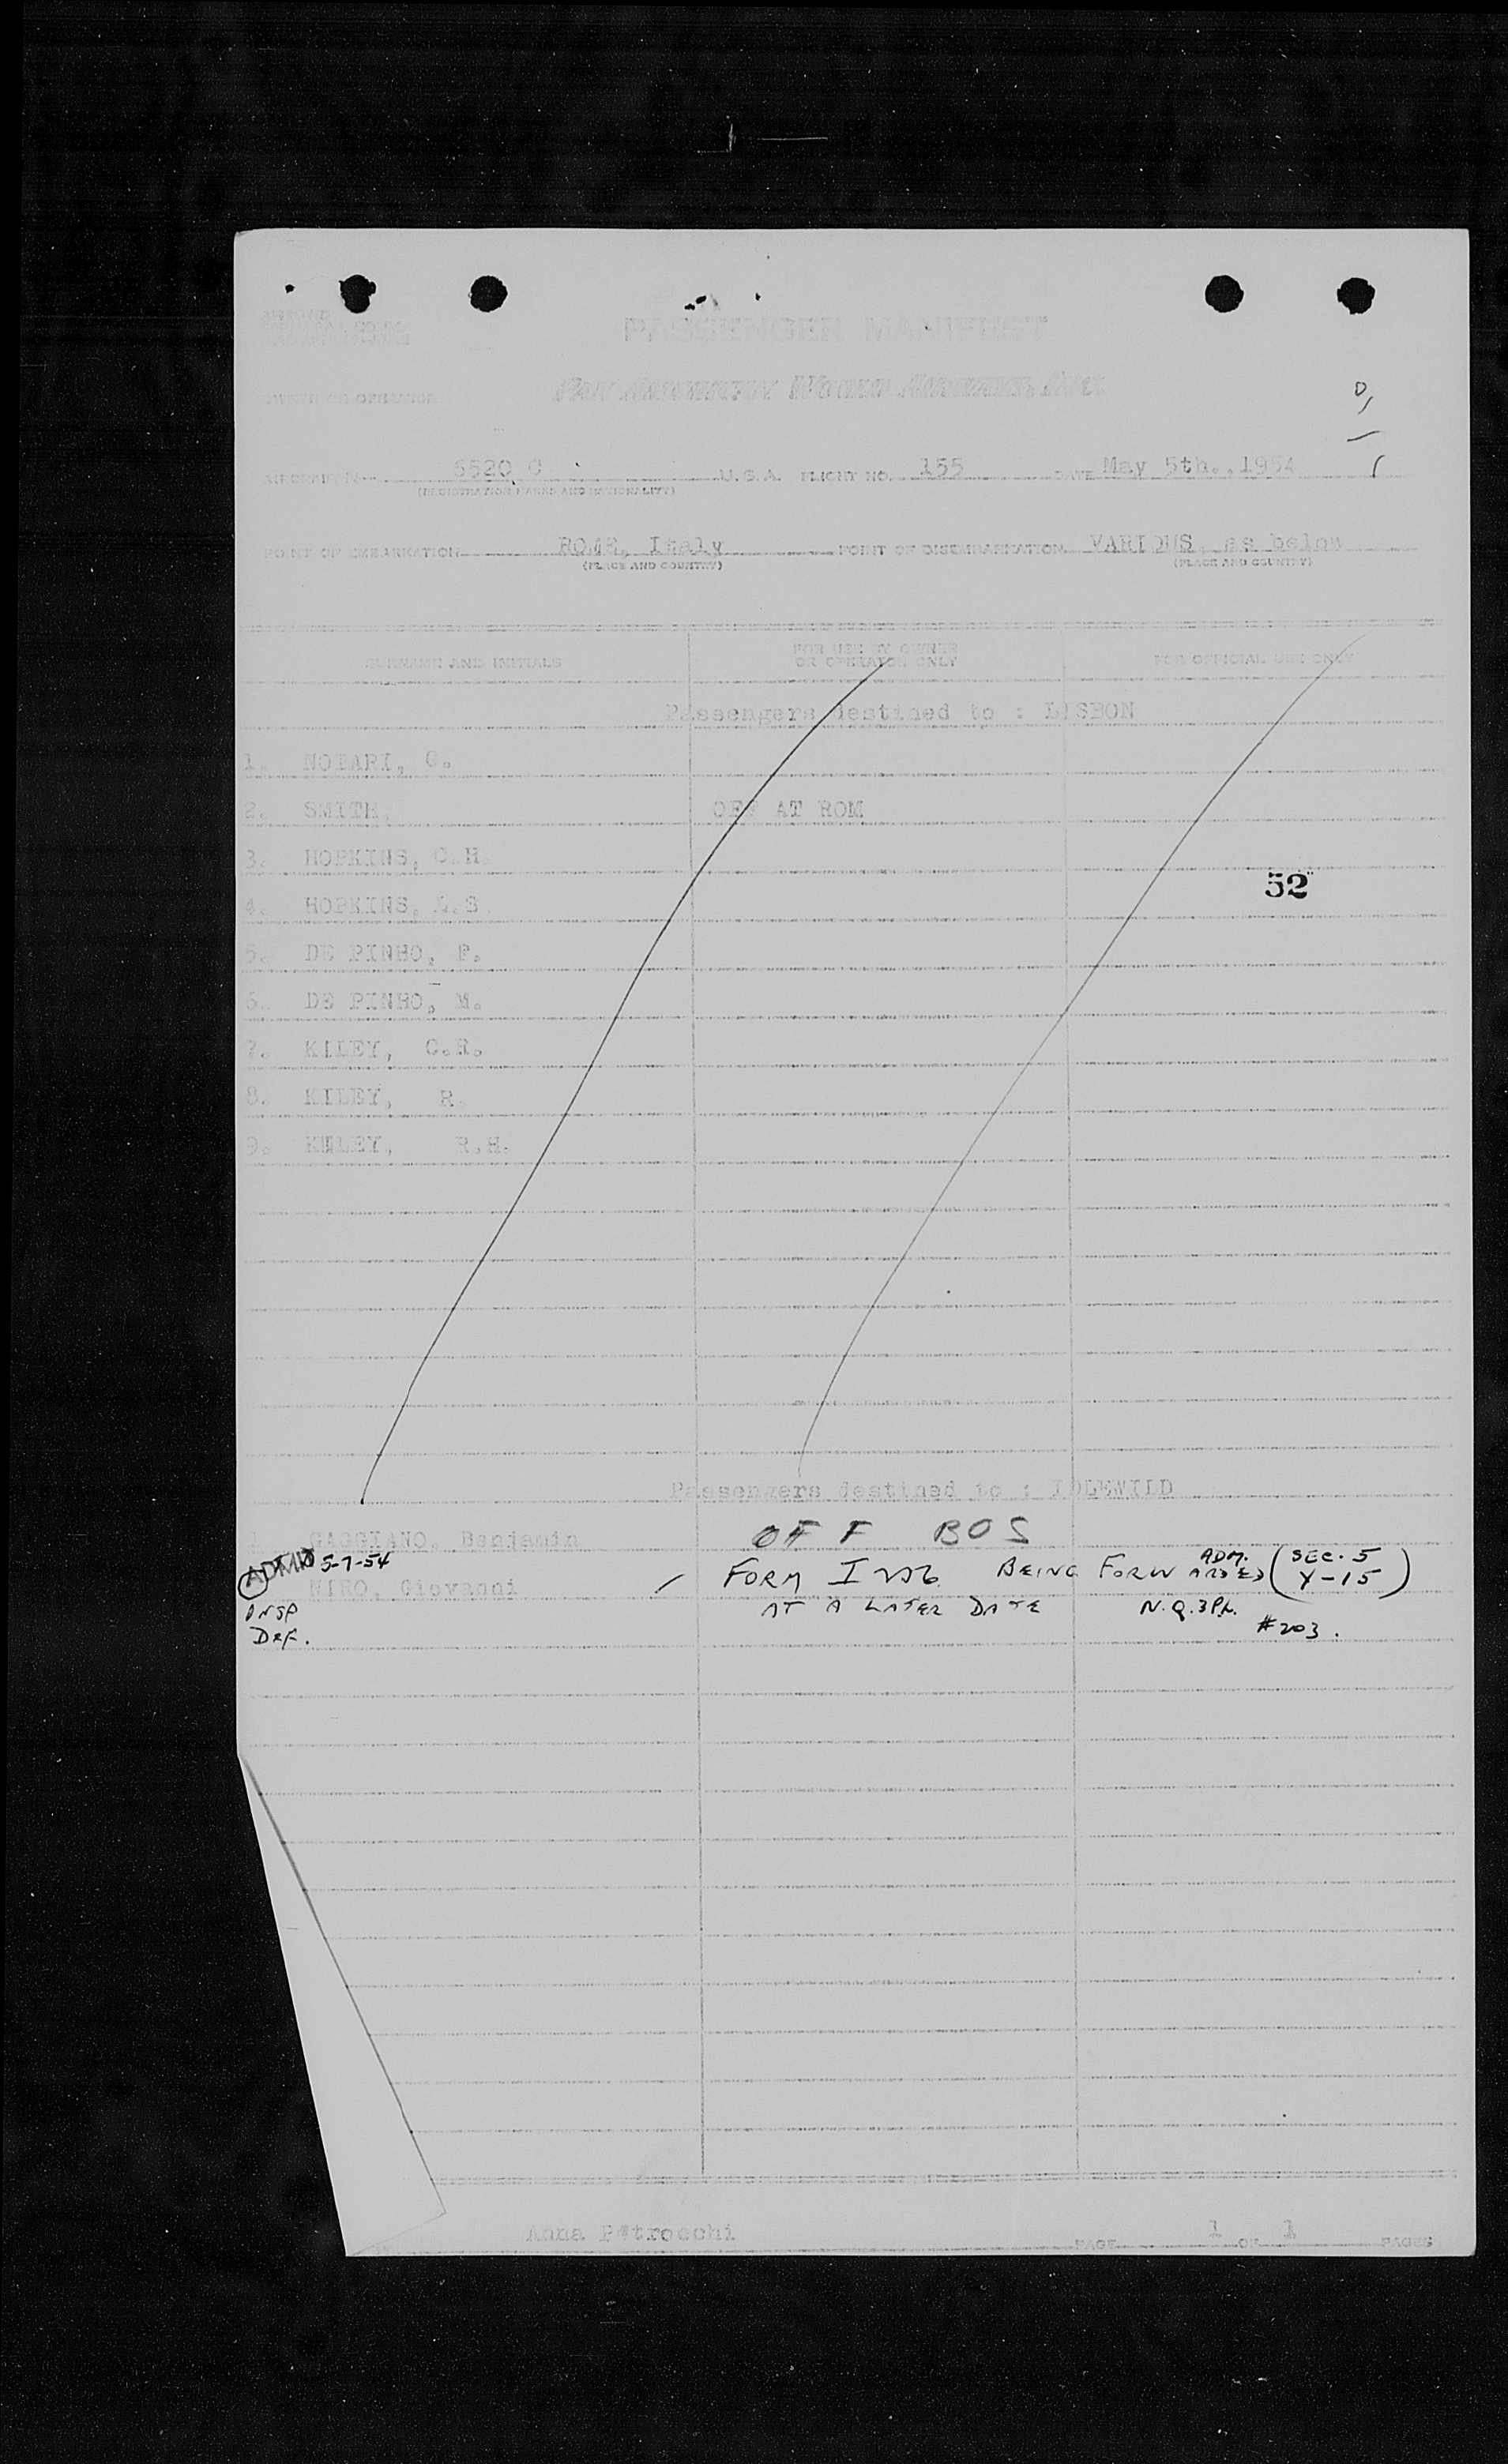 PASSENGER MANIFEST
PAN AMERICAN WORLD AIRWAYS, INC.
OWNER OR OPERATOR
AIRCRAFT 6520 C U.S.A. FLIGHT NO. 155 DATE May 5th.,1954
(REGISTRATION MARKS AND NATIONALITY)
POINT OF EMBARKATION ROME, Italy POINT OF DISEMBARKATION VARIOUS as below
(PLACE AND COUNTRY) (PLACE AND COUNTRY)
SURNAME AND INITIALS FOR USE BY OWNER OR OPERATOR ONLY FOR OFFICIAL USE ONLY
Passengers destined to : LISBON
1. NOTARI, G.
2. SMITH, OFF AT ROM
3. HOPKINS, C.H.
52
4. HOPKINS, L.S.
5. DE PINHO, F.
6. DE PINHO, M.
7. KILEY, C.R.
8. KILEY, R.
9. KILEY, R.H.
Passengers destined to : IDLEWILD
GAGGIANO, Benjamin OFF BOS
ADMIT 5-7-54
NIRO, Giovanni / FORM I BEING FORWARDED ADM. (SEC. 5 Y-15)
INSP AT A LATER DATE N.Q.
DEF. #203.
Anna Petrocchi PAGE 1 OF 1 PAGES